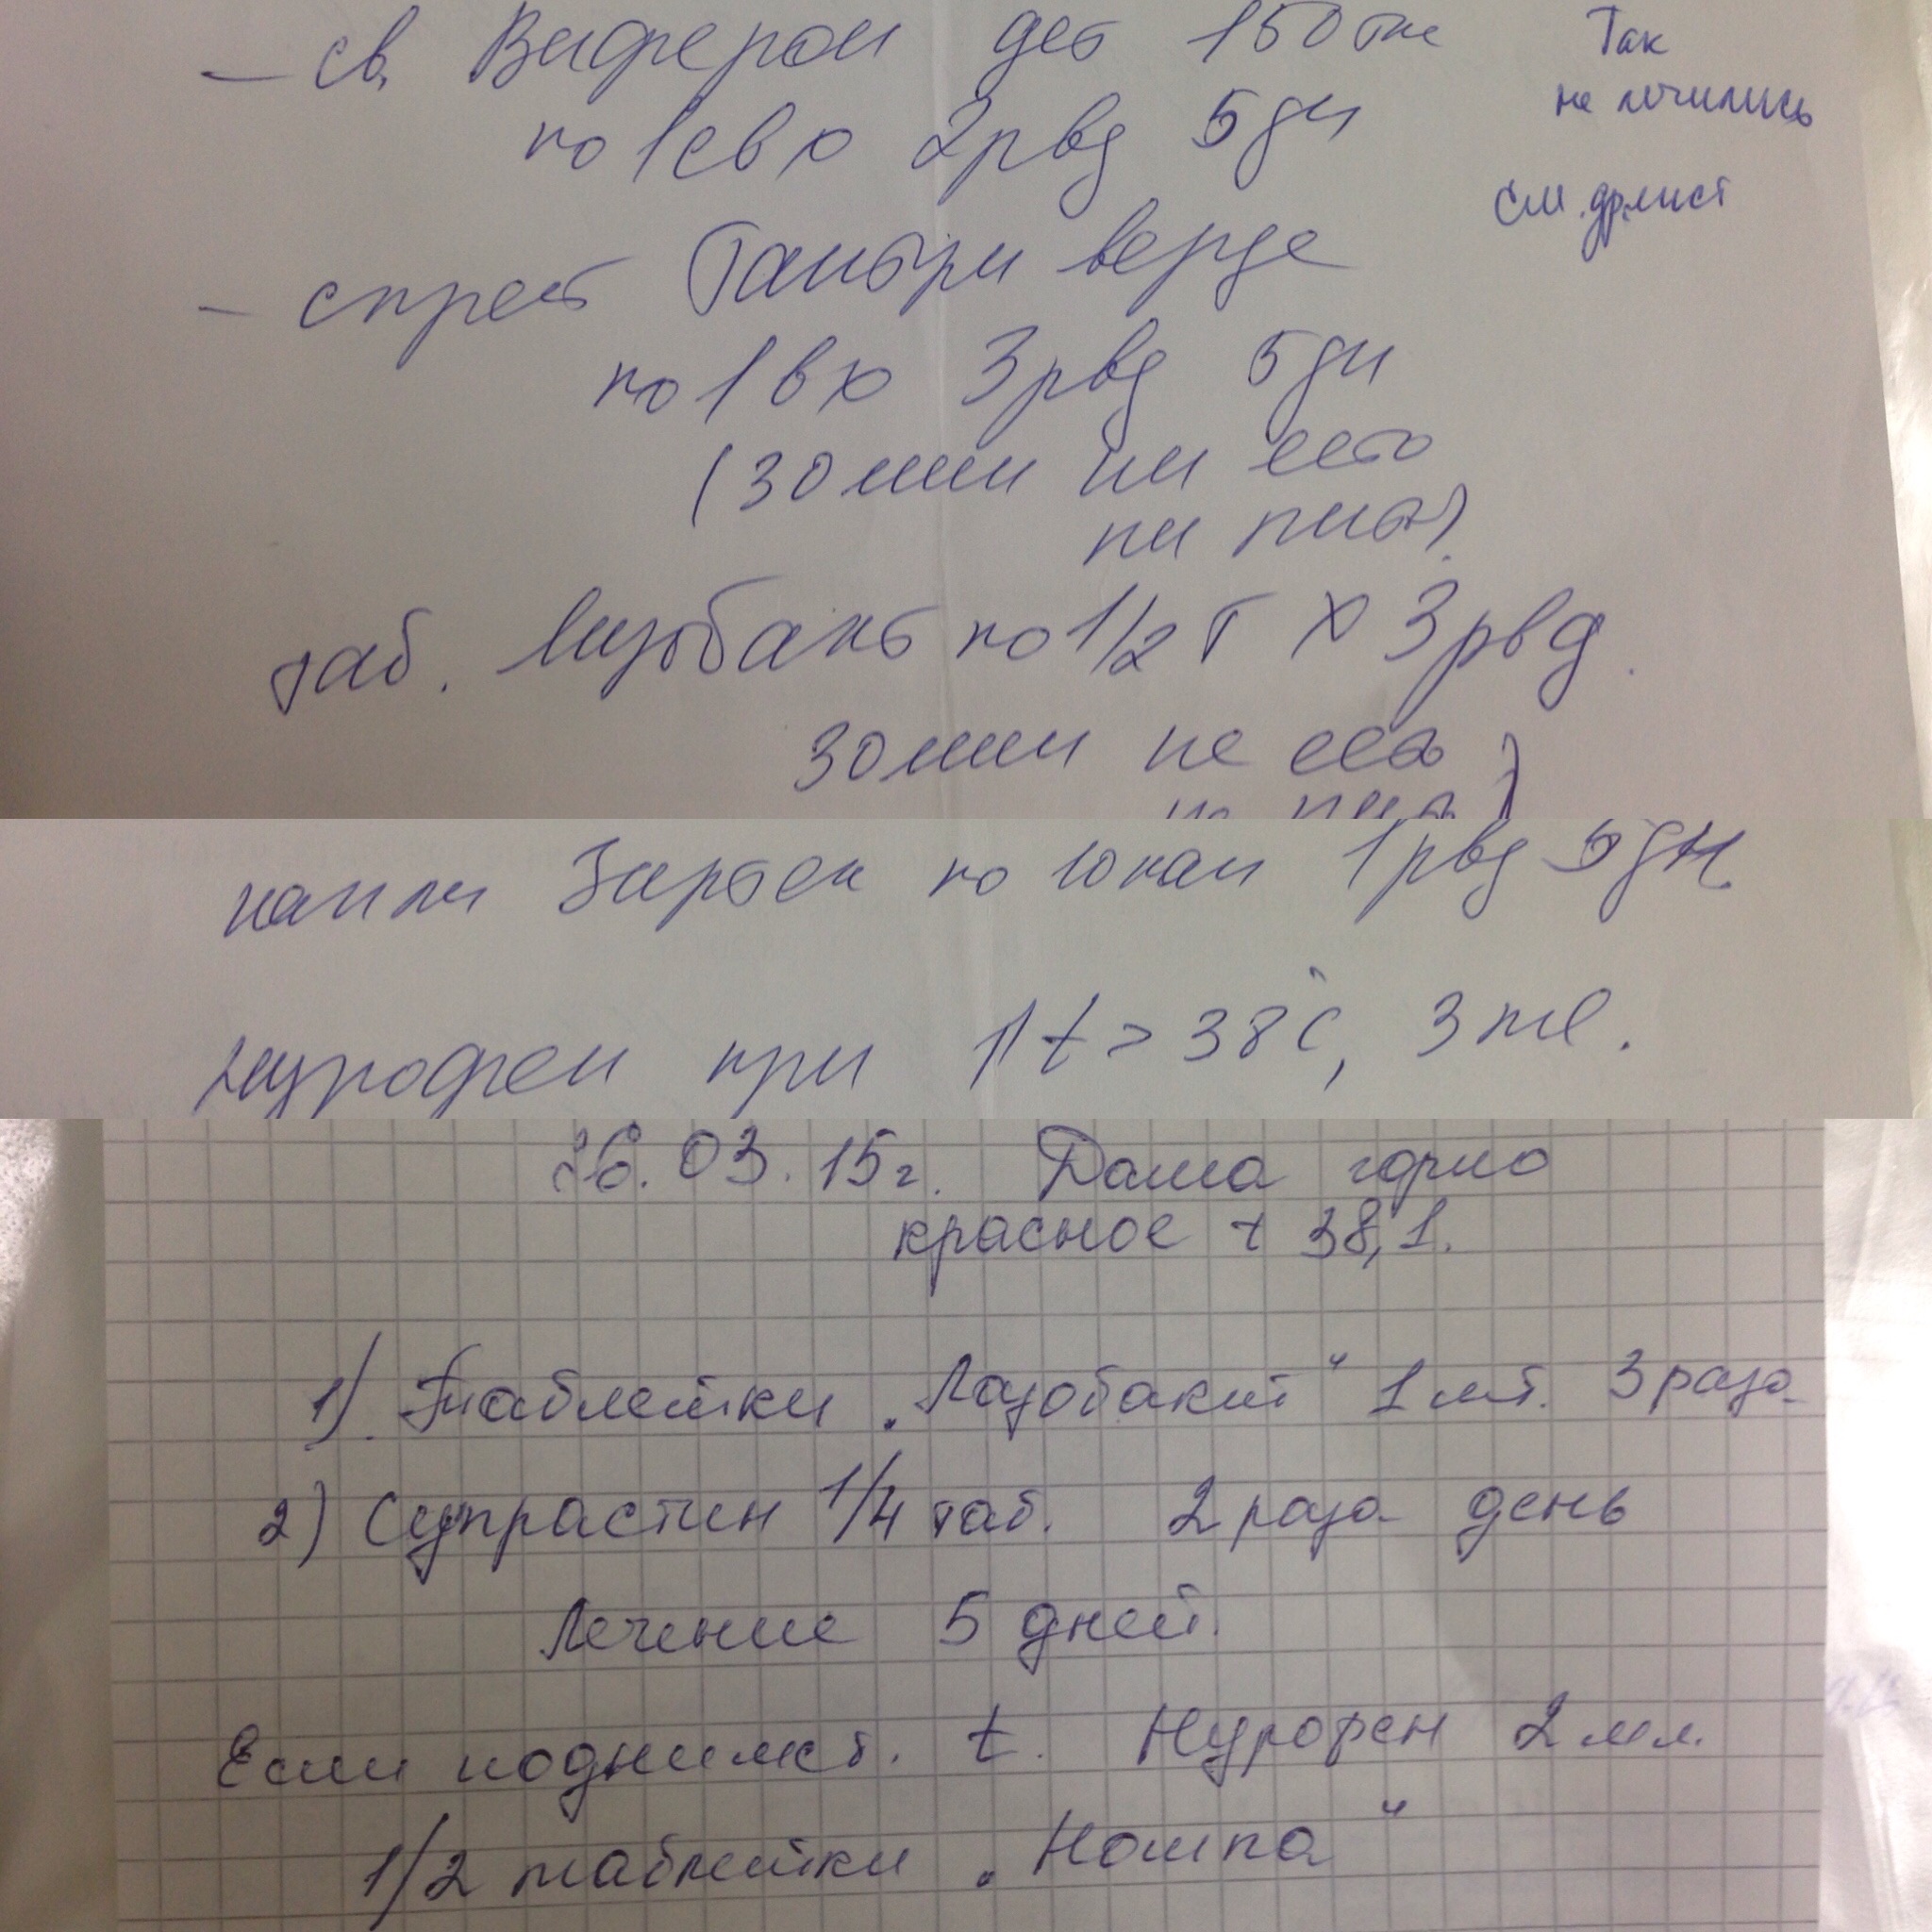 – св. Виферон дет 150 тыс
по 1 св х 2 рвд 5 дн
Так
не лечились
см. др.лист
– спрей Тантум верде
по 1 в х 3 рвд 5 дн
(30 мин ни есть
ни пить).
таб. Лизобакт по 1/2 т х 3 рвд.
30 мин не есть
не пить)
капли Зиртек по 10 кап 1 рвд 5 дн
Нурофен при t > 38°C, 3 мл.
26.03.15г. Даша горло
красное t 38,1.
1). Таблетки „Лазобакт" 1 шт. 3 раза
2) Супрастин 1/4 таб. 2 раза день
Лечение 5 дней.
Если поднимет. t. Нурофен 2 мл.
1/2 таблетки „Ношпа"